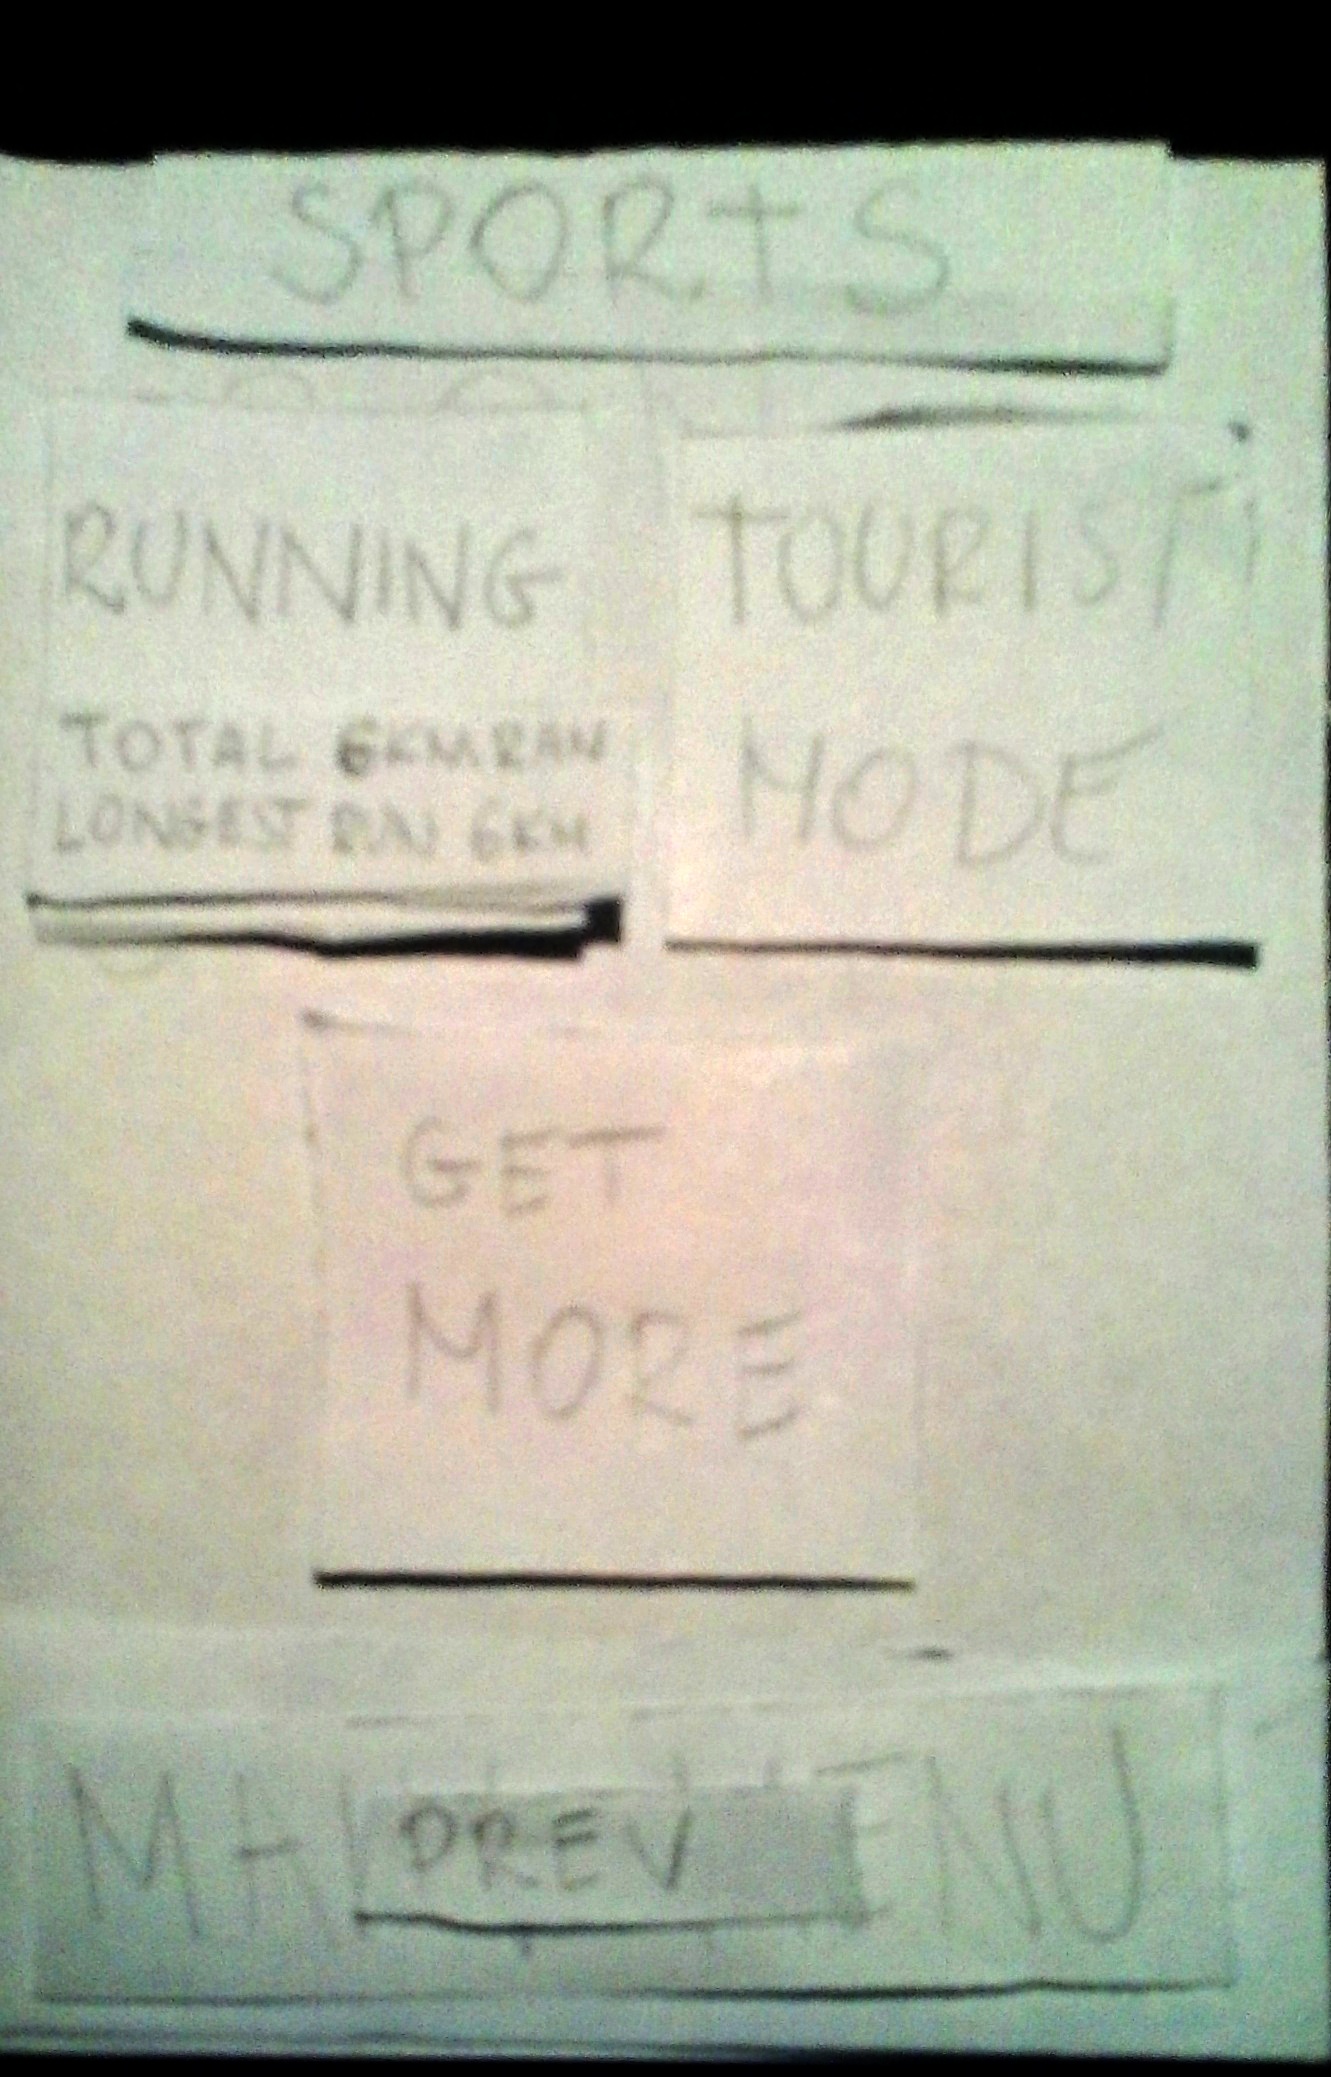 SPORTS
RUNNING
TOTAL 6KM RAN
LONGEST RUN 6KM
TOURIST
MODE
GET
MORE
PREV